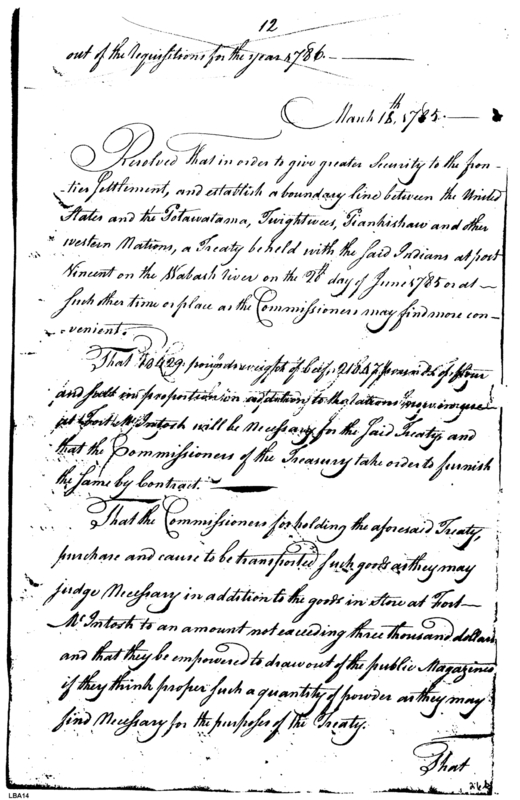 12
out of the requisitions for the year 1786.
March 18th, 1785.
Resolved That in order to give greater Security to the fron-
tier Settlement, and establish a boundary line between the United
States and the Potawatama, Twightwees, Piankishaw and other
western Nations, a Treaty be held with the said Indians at post
Vincent on the Wabash river on the 20th day of June 1785 or at
such other time or place as the Commissioners may find more con-
venient.
That pounds weight of beef, pounds of flour
and salt in proportion in addition to the rations now in
at Fort McIntosh will be necessary for the said Treaty and
that the Commissioners of the Treasury take order to furnish
the same by Contract.
That the Commissioners for holding the aforesaid Treaty,
purchase and cause to be transported such goods as they may
judge Necessary in addition to the goods in store at Fort
McIntosh to an amount not exceeding three thousand dollars
and that they be empowered to draw out of the public Magazines
if they think proper such a quantity of powder as they may
find Necessary for the purposes of the Treaty.
That
LBA14